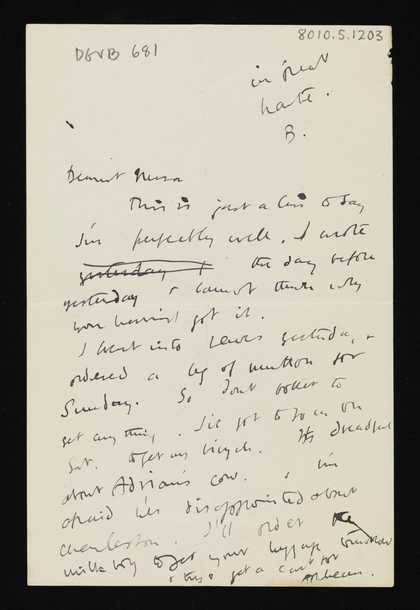 DGVB 681
8010.5.1203
in great
haste.
B.
Dearest Nessa
This is just a line to say
I'm perfectly well. I wrote
yesterday & the day before
yesterday & cannot think why
you haven't got it.
I went into Lewes yesterday, &
ordered a leg of mutton for
Sunday. So don't bother to
get anything. I've got to go in on
Sat. to get my bicycle. It's dreadful
about Adrian's cow. & I'm
afraid he's disappointed about
Charleston. I'll order the
milk boy to get your luggage tomorrow
& try & get a cart for